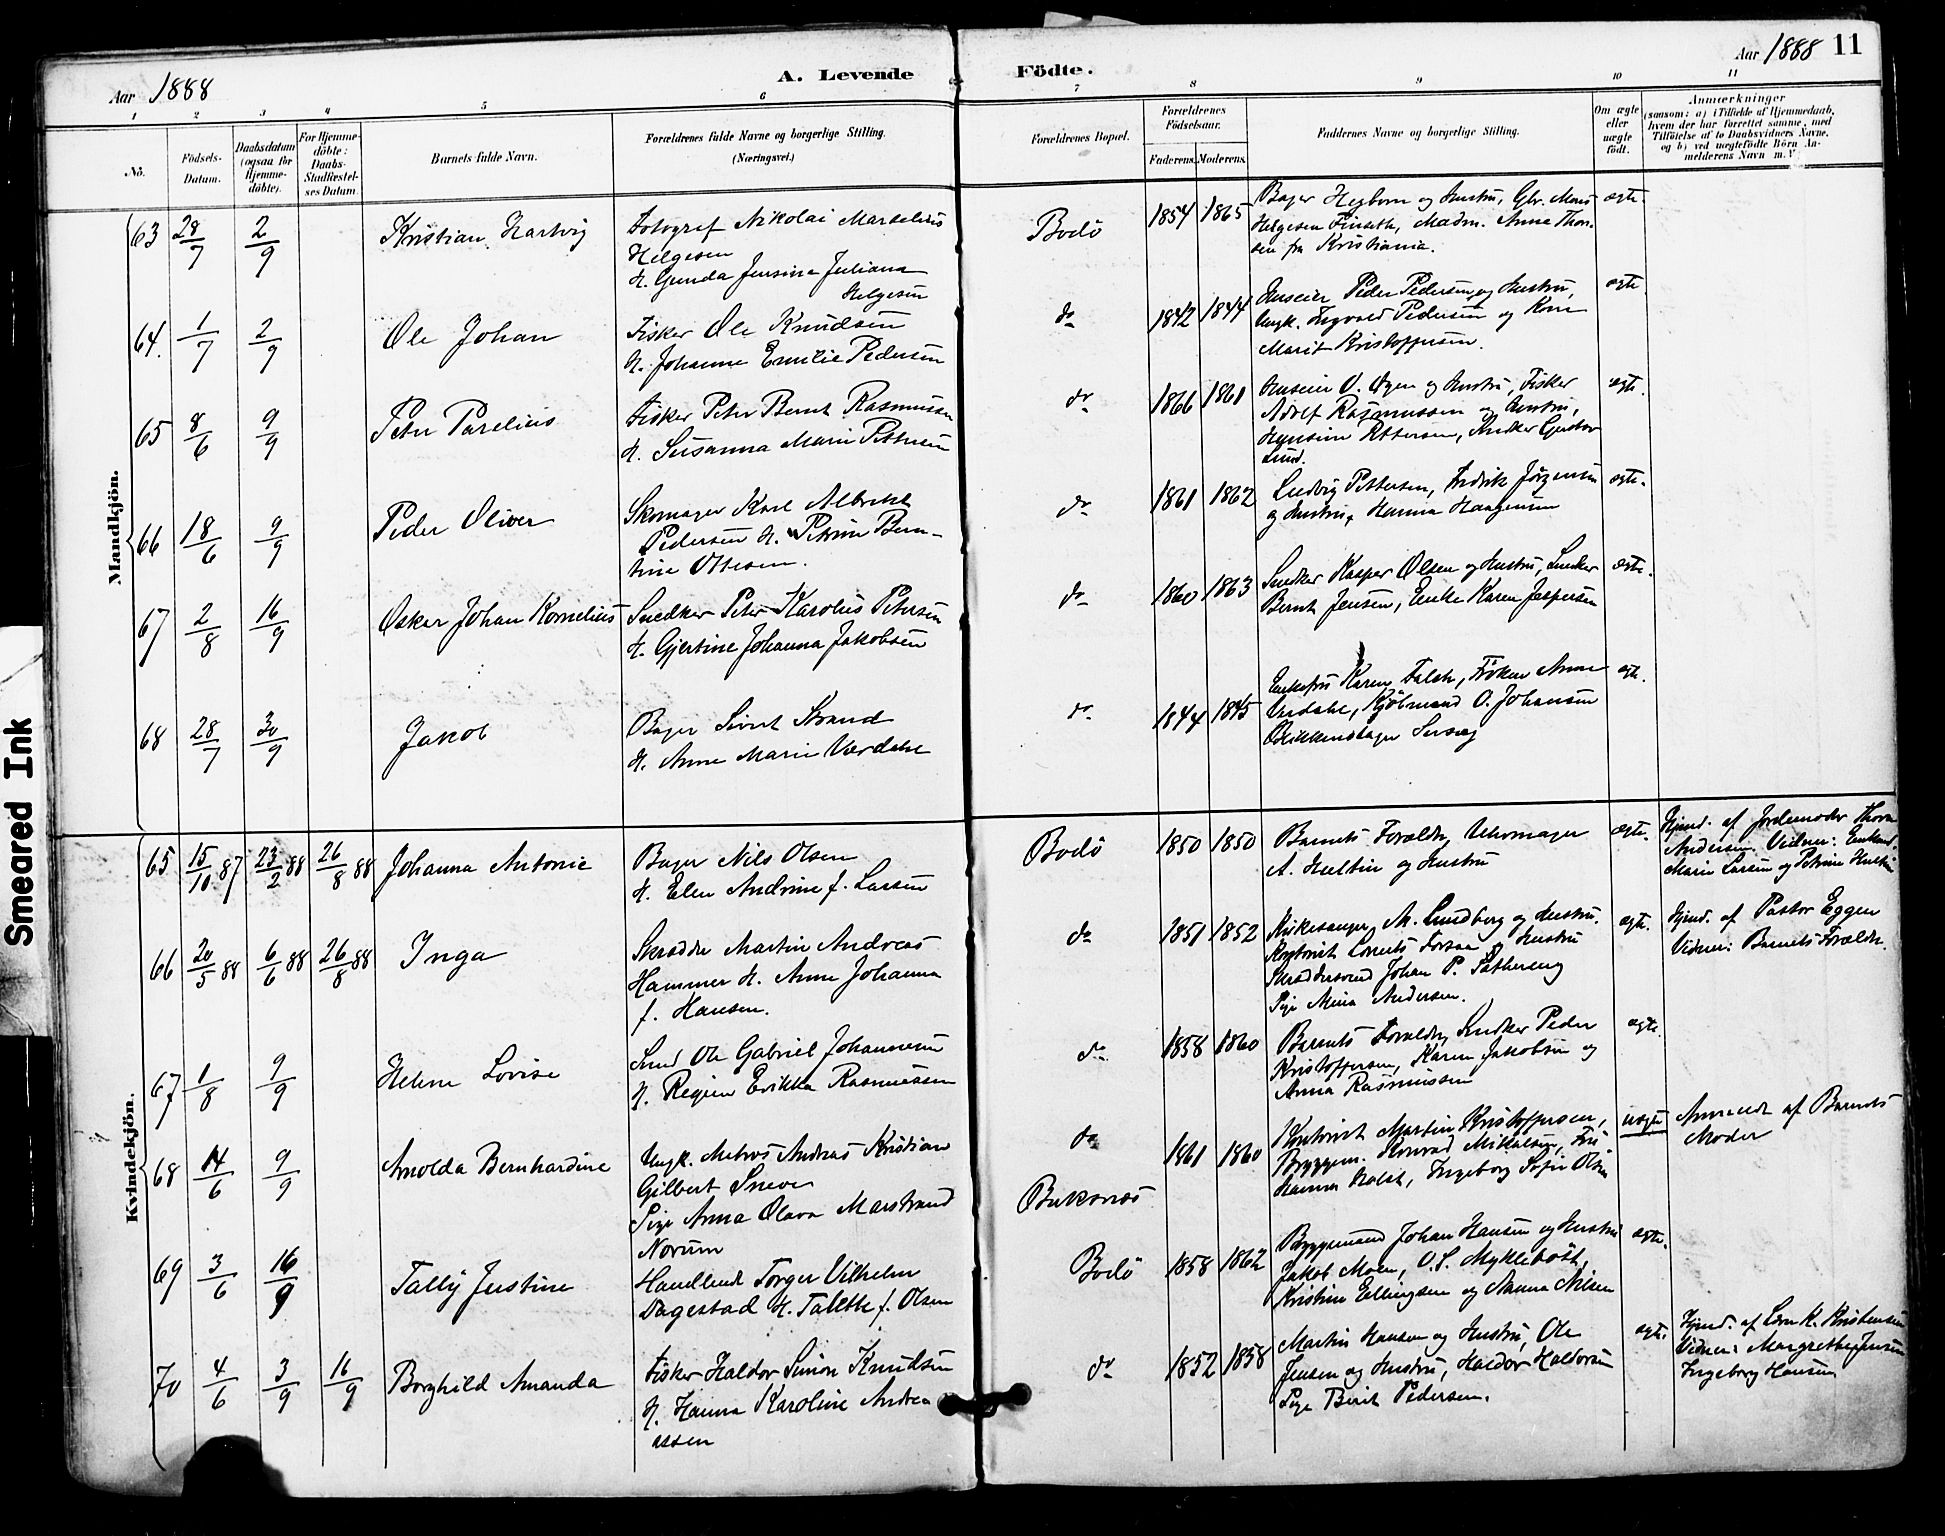 Aar 1888
A. Levende Födte.
Aar 1888 11
1 2 3 4 5 6 7 8 9 10 11
No.
Födsels-
Datum.
Daabsdatum
(ogsaa for
Hjemme-
döbte).
For Hjemme-
döbte:
Daabs-
Stadfæstel-
ses Datum.
Barnets fulde Navn.
Forældrenes fulde Navne og borgerlige Stilling.
(Næringsvei.)
Forældrenes Bopæl.
Forældrenes
Födselsaar.
Faderens. Moderens.
Faddernes Navne og borgerlige Stilling.
Om ægte
eller
uægte
födt.
Anmærkninger
(saasom: a) i Tilfælde af Hjemmedaab,
hvem der har forrettet samme, med
Tilföielse af to Daabsvidners Navne,
og b) ved uægtefödte Börn An-
melderens Navn m. V.
Mandkjön.
63 28/7 2/9 Kristian Hartvig
Fotograf Nikolai Marselius
Helgesen
H. Gunda Jensine Juliana
Helgesen
Bodö 1854 1865
Bager Hegbom og Hustru, Gbr. Mons
Helgesen Finseth, Madm. Anna Thor-
sen fra Kristiania.
ægte
64. 1/7 2/9 Ole Johan
Fisker Ole Knudsen
H. Johanna Emilie Pedersen
do 1842 1844
Huseier Peder Pedersen og Hustru,
Ungk. Ingvald Pedersen og Kone
Marit Kristoffersen.
ægte
65 8/6 9/9 Peter Parelius
Fisker Peter Bernt Rasmussen
H. Susanna Marie Petersen
do 1866 1861
Huseier O. Ogen og Hustru, Fisker
Adolf Rasmussen og Hustru,
Hansine Pettersen, Snedker Gustav
Lund.
ægte.
66 18/6 9/9 Peder Oliver
Skomager Karl Albrikt
Pedersen H. Petrine Bern-
tine Ottesen.
do 1861 1862
Ludvig Pettersen, Fredrik Jörgensen
og Hustru, Hanna Haagensen
ægte.
67 2/8 16/9 Oskar Johan Kornelius
Snedker Peter Karolius Petersen
H. Gjertine Johanna Jakobsen
do 1860 1863
Snedker Kasper Olsen og Hustru, Snedker
Bernt Jensen, Enke Karen Jespersen
ægte.
68 28/7 30/9 Jakob
Bager Sivert Strand
H. Anne Marie Værdahl
do 1844 1845
Enkefru Karen Falch, Fröken Anne
Verdahl, Kjöbmand O. Johansen
ægte.
Kvindekjön.
65 15/10 87 23/2 88 26/8 88 Johanna Antonie
Bager Nils Olsen
H. Elen Andrine f. Larsen
Bodö 1850 1850
Barnets Forældre, Uhrmager
A. Hultin og Hustru
ægte.
Hjemd. af Jordemoder Thora
Andersen. Vidner: Enkemd.
Marie Larsen og Petrine Hultin
66 20/5 88 6/6 88 26/8 88 Inga
Skrædder Martin Andreas
Hammer H. Anne Johanna
f. Hansen.
do 1851 1852
Kirkesanger M. Lundberg og Hustru.
Kontorist Lorents Forsaa og Hustru
Skræddersvend Johan P. Sæthereng
Pige Mina Andersen.
ægte.
Hjemd. af Pastor Eggen
Vidner: Barnets Forældre.
67 1/8 9/9 Helene Lovise
Smed Ole Gabriel Johannesen
H. Regine Erikka Rasmussen
do 1858 1860
Barnets Forældre, Snedker Peder
Kristoffersen, Karen Jakobsen og
Anna Rasmussen
ægte.
68 14/6 9/9 Arnolda Bernhardine
Ungk. Matros Andreas Kristian
Gilbert Sneve
Pige Anna Olava Marstrand
Norum
do
Buksnæs
1861 1860
Kontorist Martin Kristoffersen,
Bryggem. Konrad Mikalsen, Frü
Hanna Holst, Ingeborg Sofie Olsen
uægte
Anmeldt af Barnets
Moder
69 3/6 16/9 Tally Justine
Handlende Torger Vilhelm
Dagestad H. Talette f. Olsen
Bodö 1858 1862
Bryggemand Johan Hansen og Hustru
Jakob Moen, O. S. Mykleböst,
Kristine Ellingsen og Nanna Nilsen
ægte.
70 4/6 3/9 16/9 Borghild Amanda
Fisker Haldor Simon Knudsen
H. Hanna Karoline Andrea
assen
do 1852 1858
Martin Hansen og Hustru, Ole
Jensen og Hustru, Haldor Haldorsen
Pige Berit Pedersen.
ægte.
Hjemd. af Lærer K. Kristensen
Vidner: Margrethe Jensen
Ingeborg Hansen
Smeared Ink